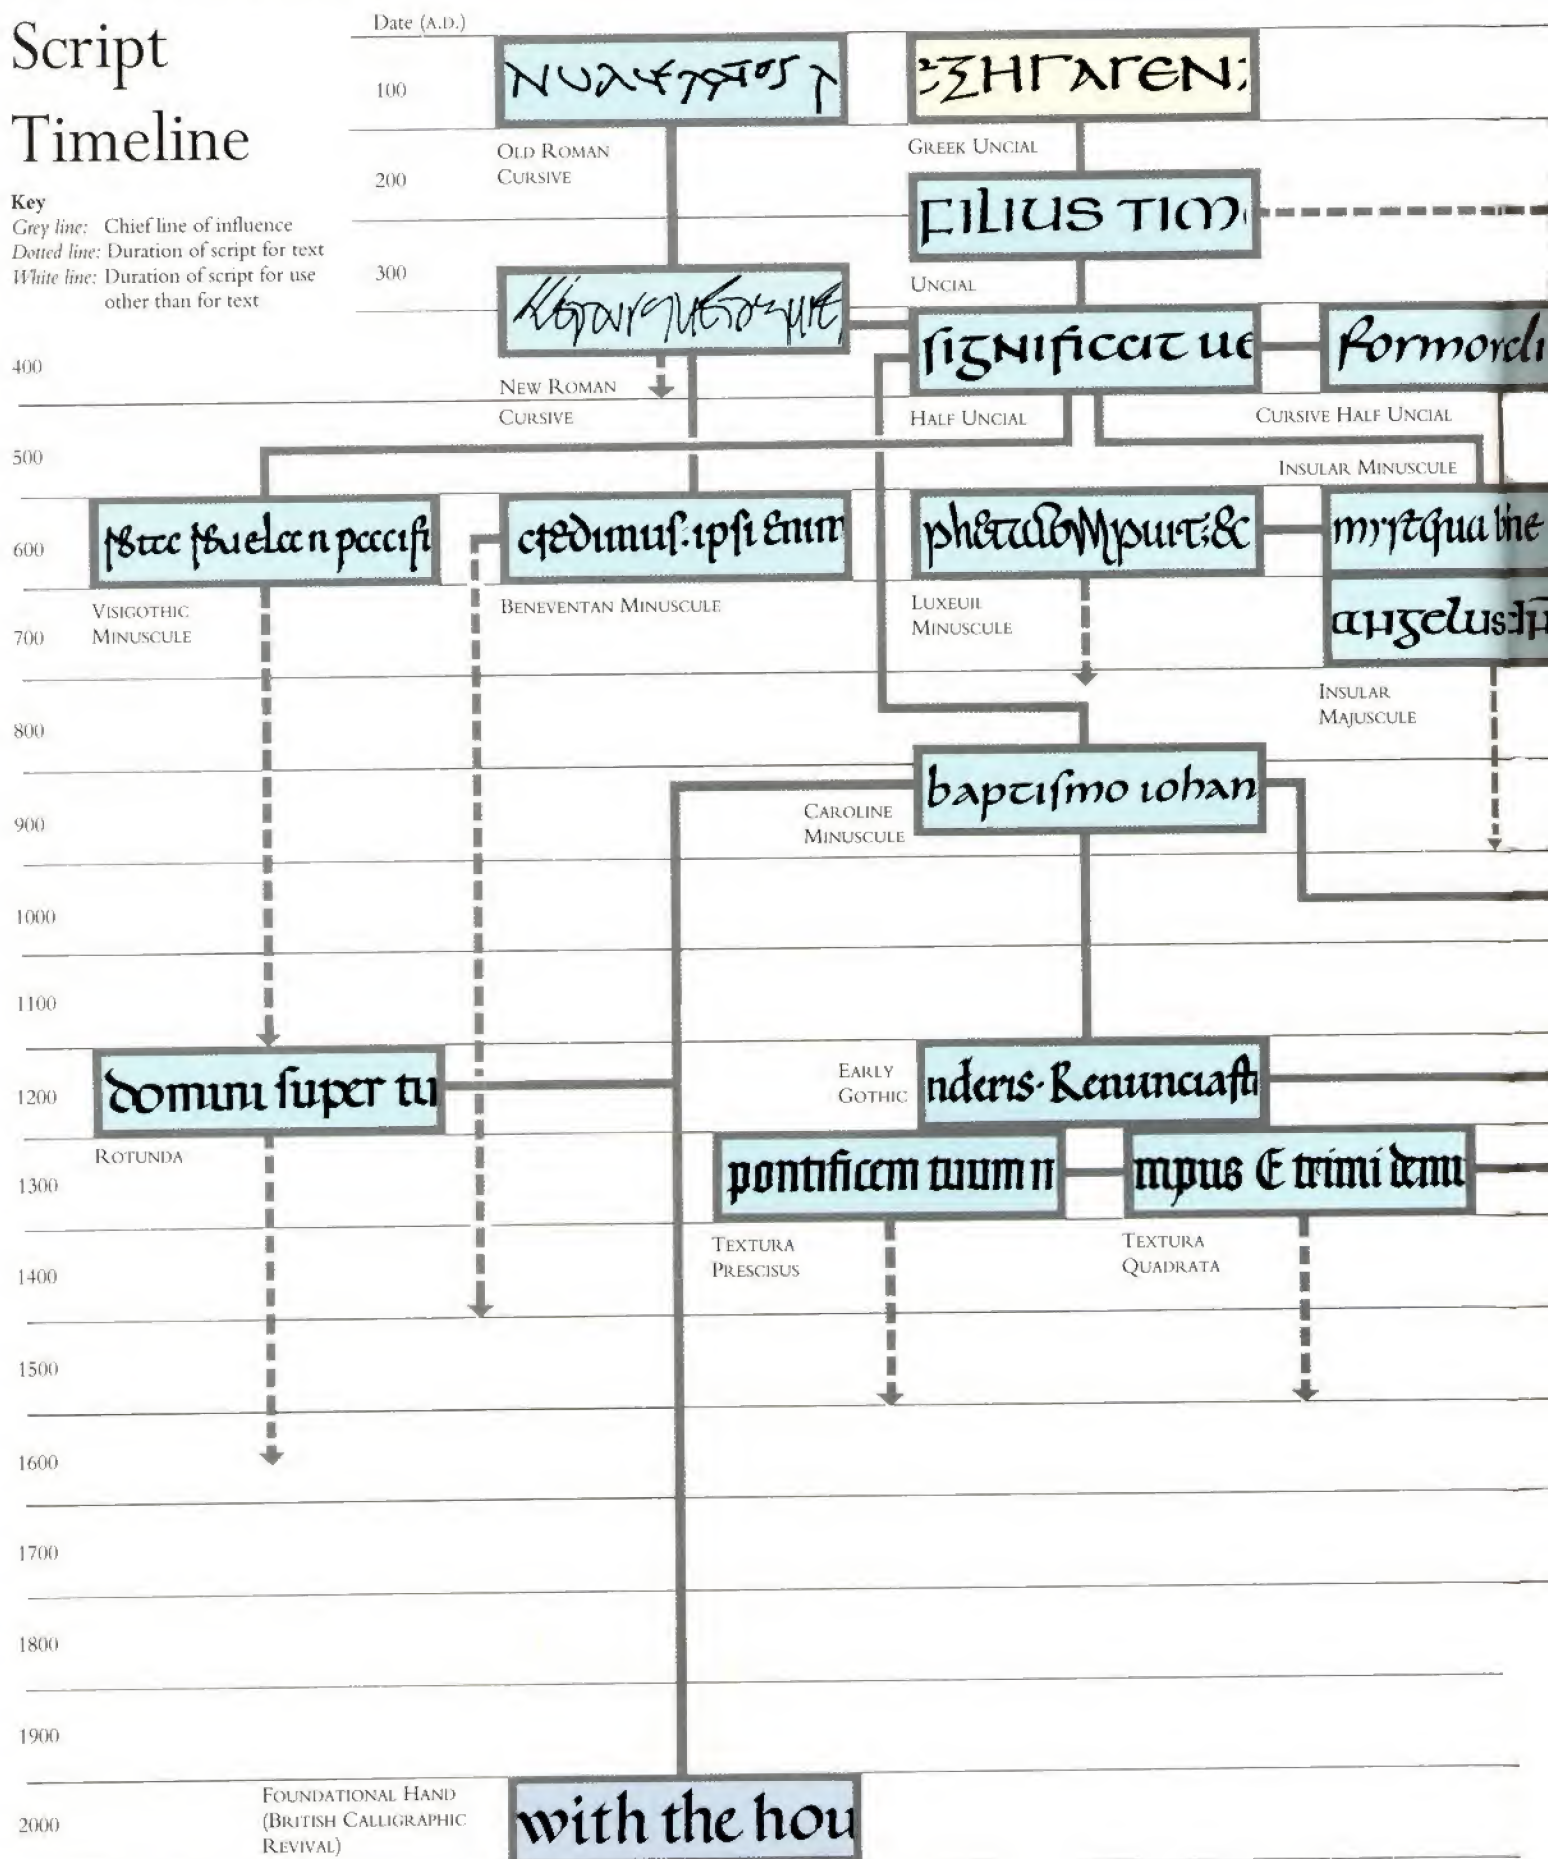 Script
Timeline
Key
Grey line: Chief line of influence
Dotted line: Duration of script for text
White line: Duration of script for use
other than for text
Date (A.D.)
100
200
300
400
500
600
700
800
900
1000
1100
1200
1300
1400
1500
1600
1700
1800
1900
2000
OLD ROMAN
CURSIVE
GREEK UNCIAL
FILIUS TIM
UNCIAL
NEW ROMAN
CURSIVE
significat ue
HALF UNCIAL
CURSIVE HALF UNCIAL
INSULAR MINUSCULE
VISIGOTHIC
MINUSCULE
credimus. ipsi enim
BENEVENTAN MINUSCULE
LUXEUIL
MINUSCULE
angelus
INSULAR
MAJUSCULE
baptiſmo iohan
CAROLINE
MINUSCULE
domini ſuper tu
ROTUNDA
EARLY
GOTHIC
nderis· Renunciaſti
pontificem tuum n
TEXTURA
PRESCISUS
mpus E trimi demu
TEXTURA
QUADRATA
FOUNDATIONAL HAND
(BRITISH CALLIGRAPHIC
REVIVAL)
with the hou